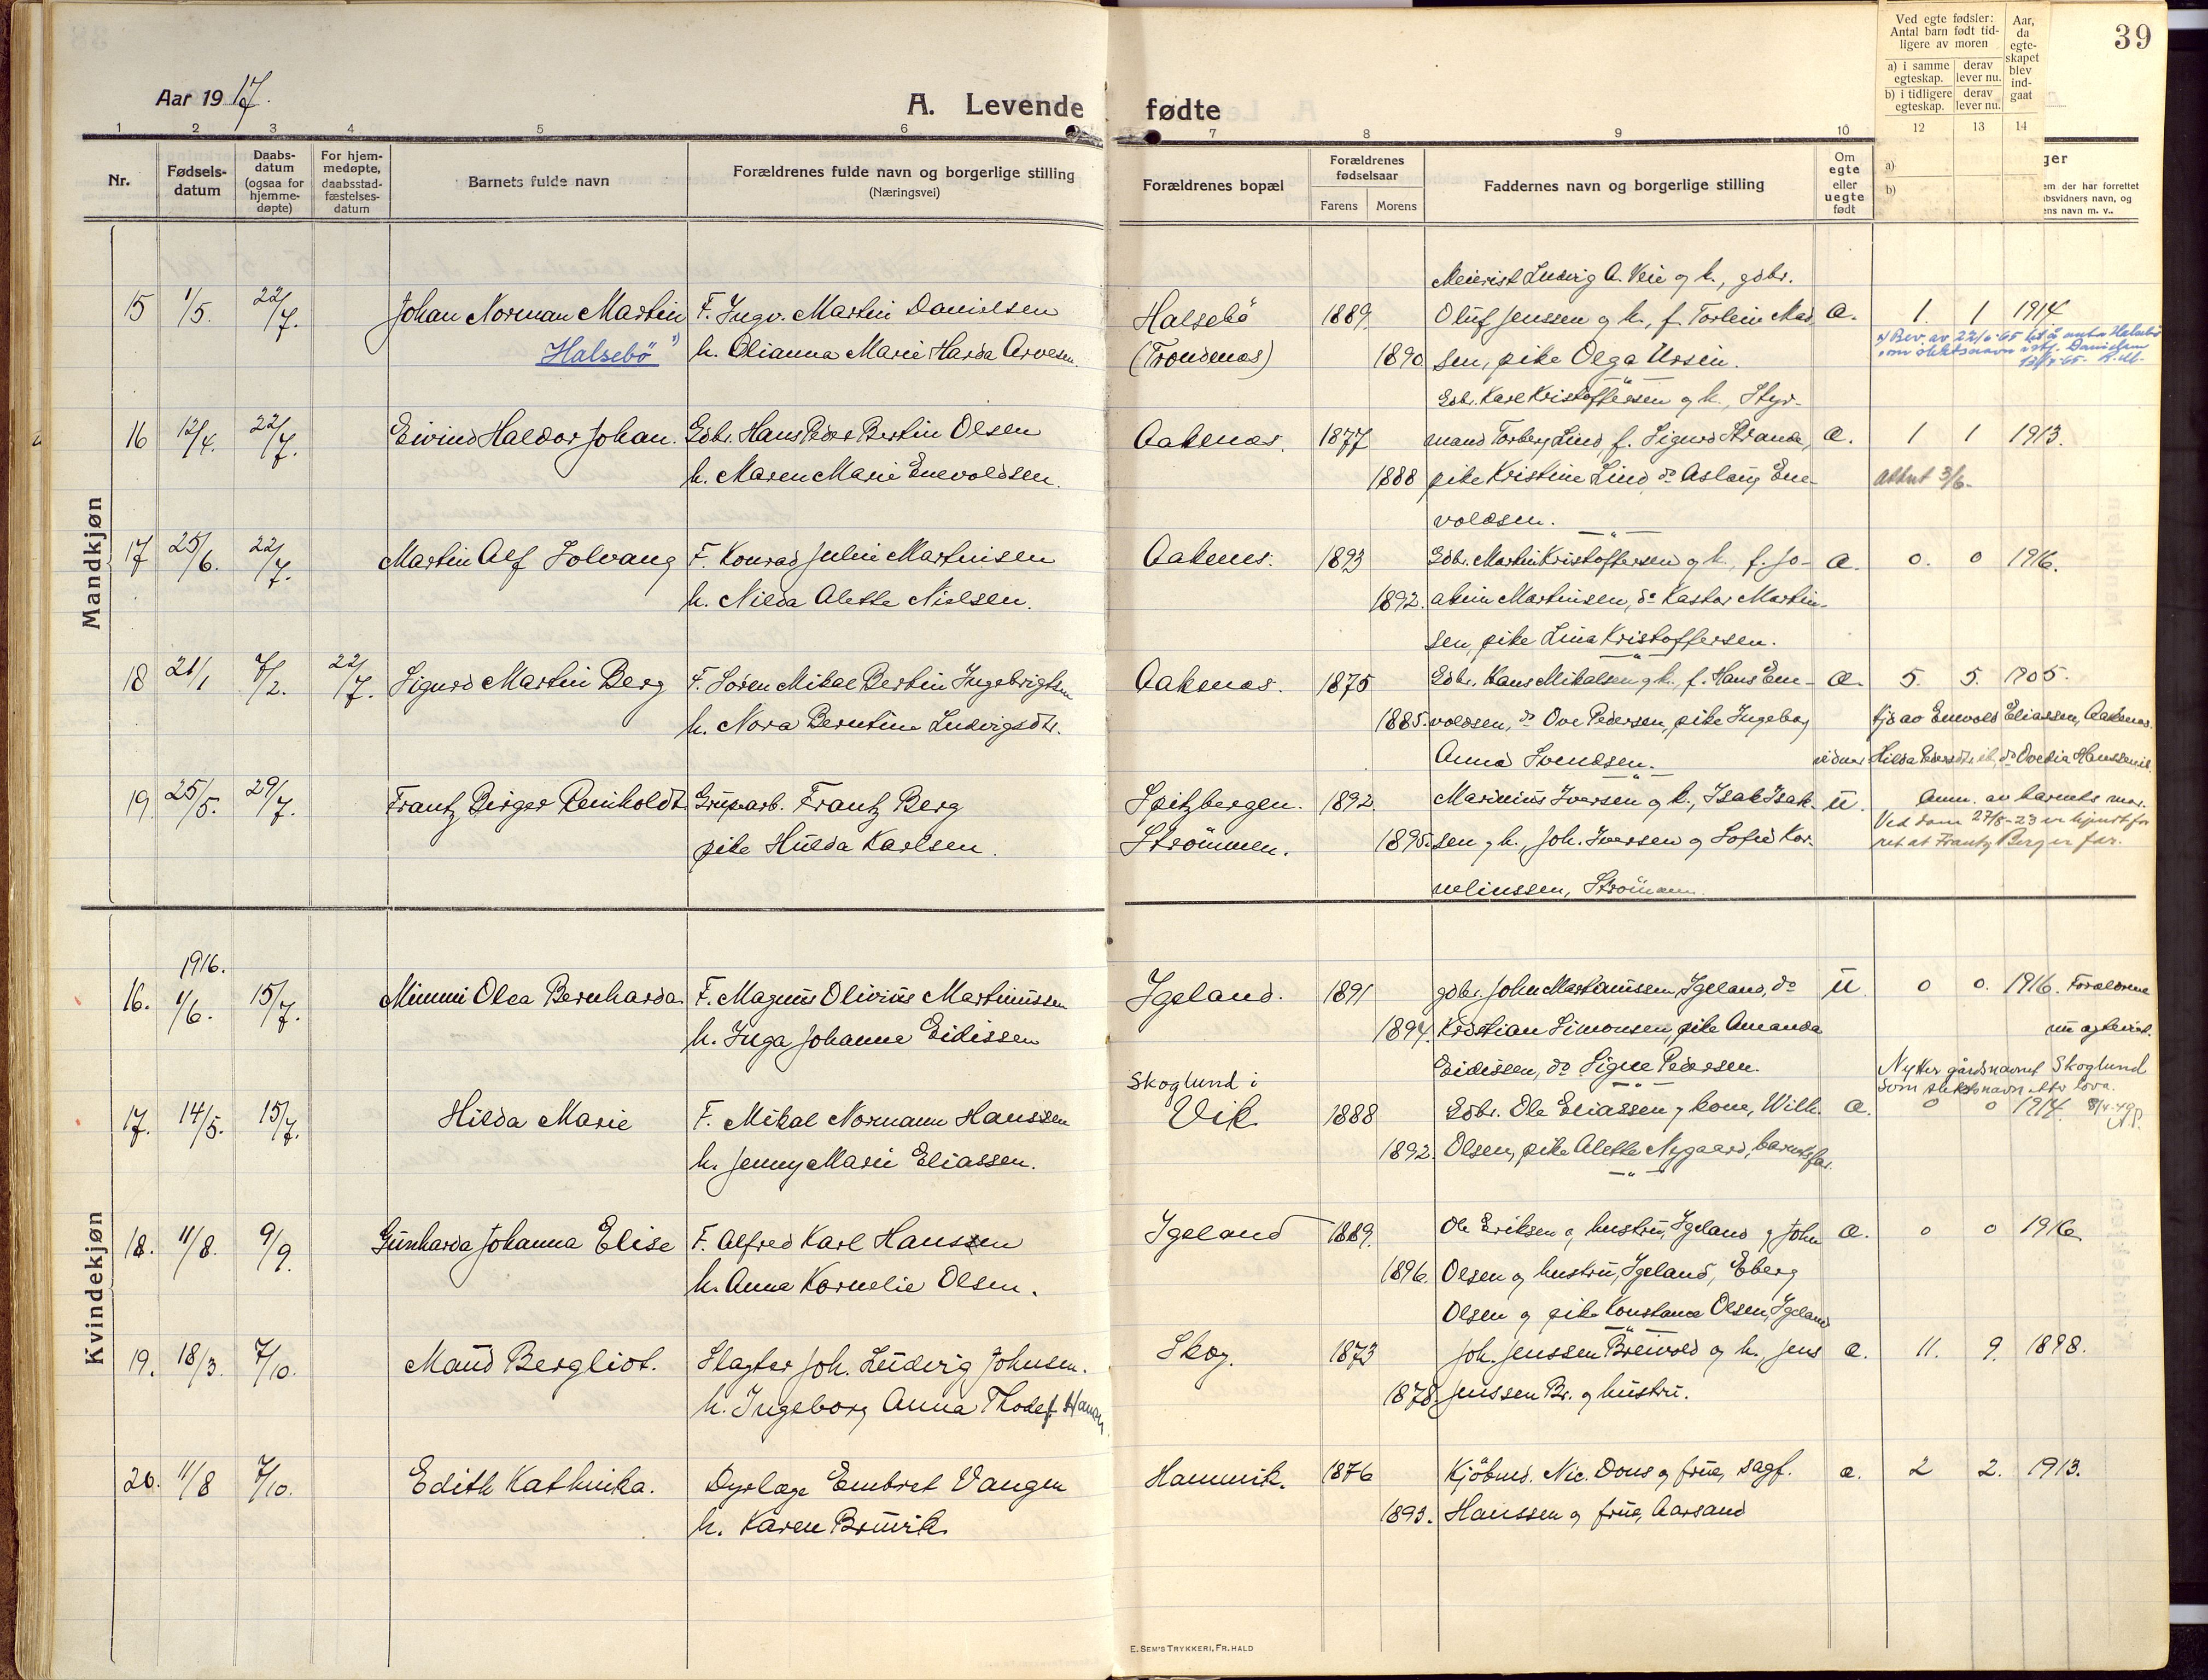 39
Aar 1917.
A. Levende fødte
Ved egte fødsler:
Antal barn født tid-
ligere av moren
a) i samme egteskap.
derav lever nu.
b) i tidligere egteskap.
derav lever nu.
Aar, da egte-
skapet blev ind-
gaat
1 2 3 4 5 6 7 8 9 10 12 13 14
Nr.
Fødsels-
datum
Daabs-
datum
(ogsaa for
hjemme-
døpte)
For hjem-
medøpte,
daabsstad-
fæstelses-
datum
Barnets fulde navn
Forældrenes fulde navn og borgerlige stilling
(Næringsvei)
Forældrenes bopæl
Forældrenes
fødselsaar
Farens Morens
Faddernes navn og borgerlige stilling
Om
egte
eller
uegte
født
a)
b)
ger
em der har forrettet
bsvidners navn, og
ens navn m. v..
Mandkjøn
Meierist Ludvig A. Veie og h., gdbr.
15 1/5. 22/7. Johan Norman Martin F. Ingv. Martin Danielsen Halsebö 1889 Oluf Jenssen og h., f. Torlein Mad- æ. 1. 1 1914
Halsebö h. Olianna Marie Harda Arvesen. (Trondenes) 1890 sen, pike Olga Ursin.
Gdbr. Karl Kristoffersen og h., Styr-
16 12/4. 22/7. Eivind Haldor Johan. Gdbr. Hans Peder Bertin Olsen Aakenes. 1877 mand Torberg Lind, f. Sigurd Strand, æ. 1 1 1913.
h. Maren Marie Enevoldsen. 1888 pike Kristine Lind, do Aslaug Ene- Attest 3/6-
voldsen.
17 25/6. 22/7. Martin Alf Solvang F. Konrad Julin Martinisen Aakenes. 1893 Gdbr. Martin Kristoffersen og h., f. Jo- æ. 0. 0 1916.
h. Nilda Alette Nielsen. 1892. akim Martinisen, do Kastor Martin-
sen, pike Lina Kristoffersen.
18 21/1 7/2. 22/7. Sigurd Martin Berg F. Sören Mikal Bertin Ingebrigtsen Aakenes. 1875 Gdbr. Hans Mikalsen og h., f. Hans Ene- æ. 5. 5. 1905.
h. Nora Berntine Ludvigsdtr. 1885. voldsen, do Ove Pedersen, pike Ingeborg hjd av Enevold Eliassen, Aakenes.
Anna Svendsen. vidner Hilda Pedersdtr ib, do Ovedia Hanssen ib.
19. 25/5. 29/7. Frantz Birger Reinholdt. Grubearb. Frantz Berg Spitzbergen. 1892 Marinius Iversen og h., Isak Isak- u. Anm. av barnets mor.
pike Hulda Karlsen. Strömmen. 1895 sen og h., Joh. Iversen og Sofie Kor- Ved dom 27/8-23 er kjendt for
nelinssen, Strömmen. ret at Frantz Berg er far.
Kvindekjøn
1916.
16. 1/6. 15/7. Mimmi Olea Bernharda. F. Magnus Olivius Martinussen Igeland. 1891 gdbr. John Martinussen, Igeland, do u. 0 0. 1916. Forældrene
h. Inga Johanne Eidissen 1894. Kristian Simonsen, pike Amanda nu egteviet.
Eidissen, do Signe Pedersen.
Skoglund i Nytter gårdsnavnet Skoglund
som slektsnavn etter lova.
17. 14/5. 15/7. Hilda Marie F. Mikal Normann Hanssen Vik 1888 Gdbr. Ole Eliassen og kone, Wilh. æ. 0 0 1914. 8/4-49
h. Jenny Marie Eliassen. 1892. Olsen, pike Alette Nygaard, barnets far.
18. 11/8. 9/9. Gunharda Johanna Elise F. Alfred Karl Hanssen Igeland 1889. Ole Eriksen og hustru, Igeland og John æ. 0 0 1916.
h. Anna Kornelie Olsen. 1896. Olsen og hustru, Igeland, Eberg
Olsen og pike Konstance Olsen, Igeland
19. 18/3. 7/10. Maud Bergliot. Slagter Joh. Ludvig Johnsen. Skog. 1873 Joh. Jenssen Breivold og h., Jens æ. 11. 9. 1898.
h. Ingeborg Anna Thode 1878. Jenssen Br. og hustru.
20. 11/8 7/10. Edith Kathinka. Dyrlæge Embret Vangen Hamnvik. 1876 Kjöbmd. Nic. Dons og frue, sagf. æ. 2 2. 1913.
h. Karen Bruvik. 1893. Hanssen og frue, Aarsand
E. SEM'S TRYKKERI, FR. HALD